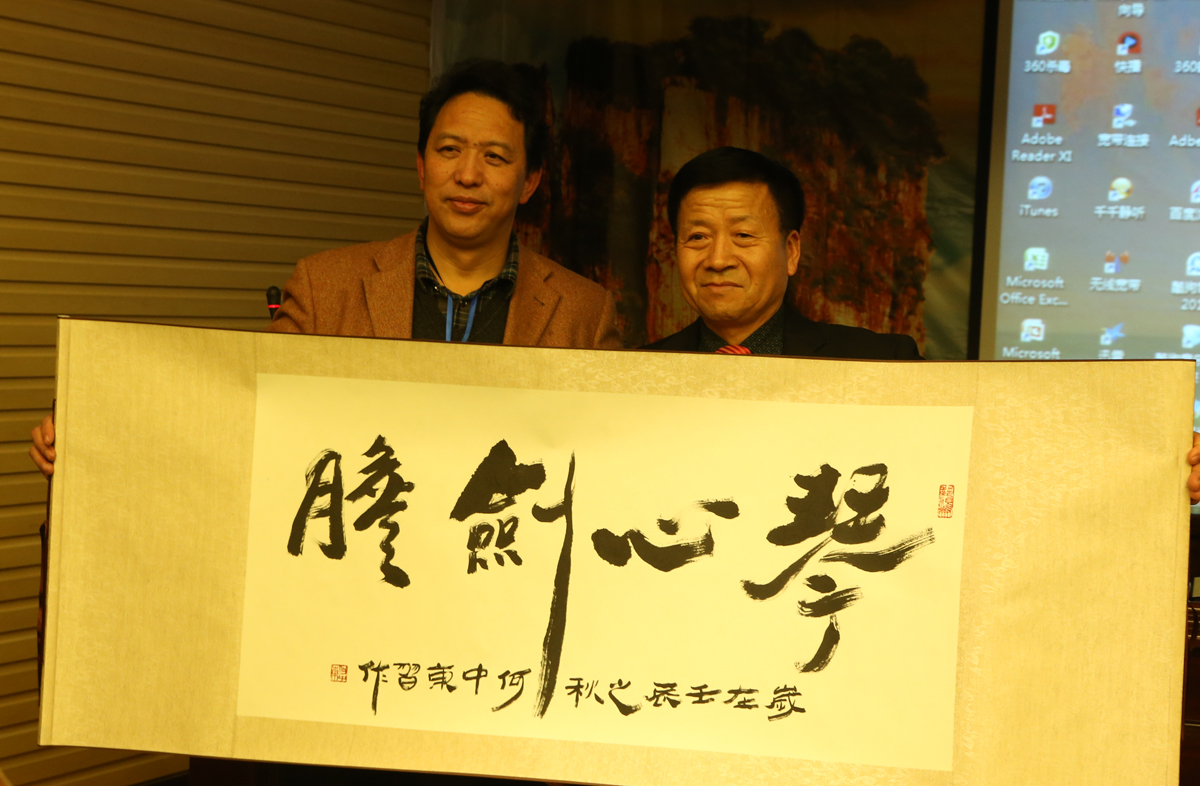 琴心劍膽
歲在壬辰之秋何中東習作
向导
360杀毒
快播
360
Adobe
Reader XI
宽带连接
iTunes
千千静听
Microsoft
Office Exc...
无线宽带
Microsoft
迅雷